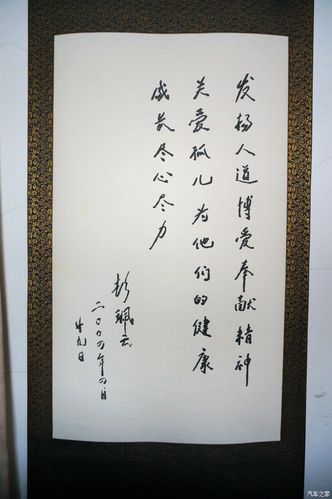 发扬人道博爱奉献精神
关爱孤儿为他们的健康
成长尽心尽力
彭珮云
二〇〇四年四月
廿九日
汽车之家